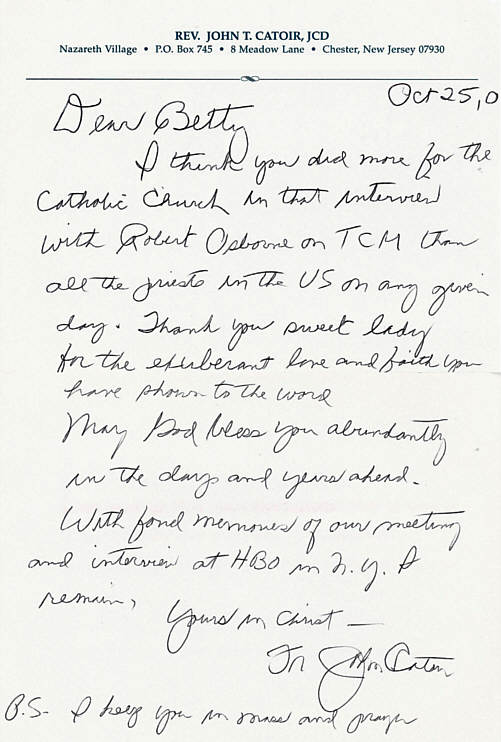 REV. JOHN T. CATOIR, JCD
Nazareth Village • P.O. Box 745 • 8 Meadow Lane • Chester, New Jersey 07930
Oct 25, 0
Dear Betty
I think you did more for the
Catholic Church in that interview
with Robert Osborne on TCM than
all the priests in the US on any given
day. Thank you sweet lady
for the exuberant love and faith you
have shown to the word
May God bless you abundantly
in the days and years ahead.
With fond memories of our meeting
and interview at HBO in N.Y. I
remain,
Yours in Christ —
Fr John Catoir
P.S. I keep you in mass and prayer